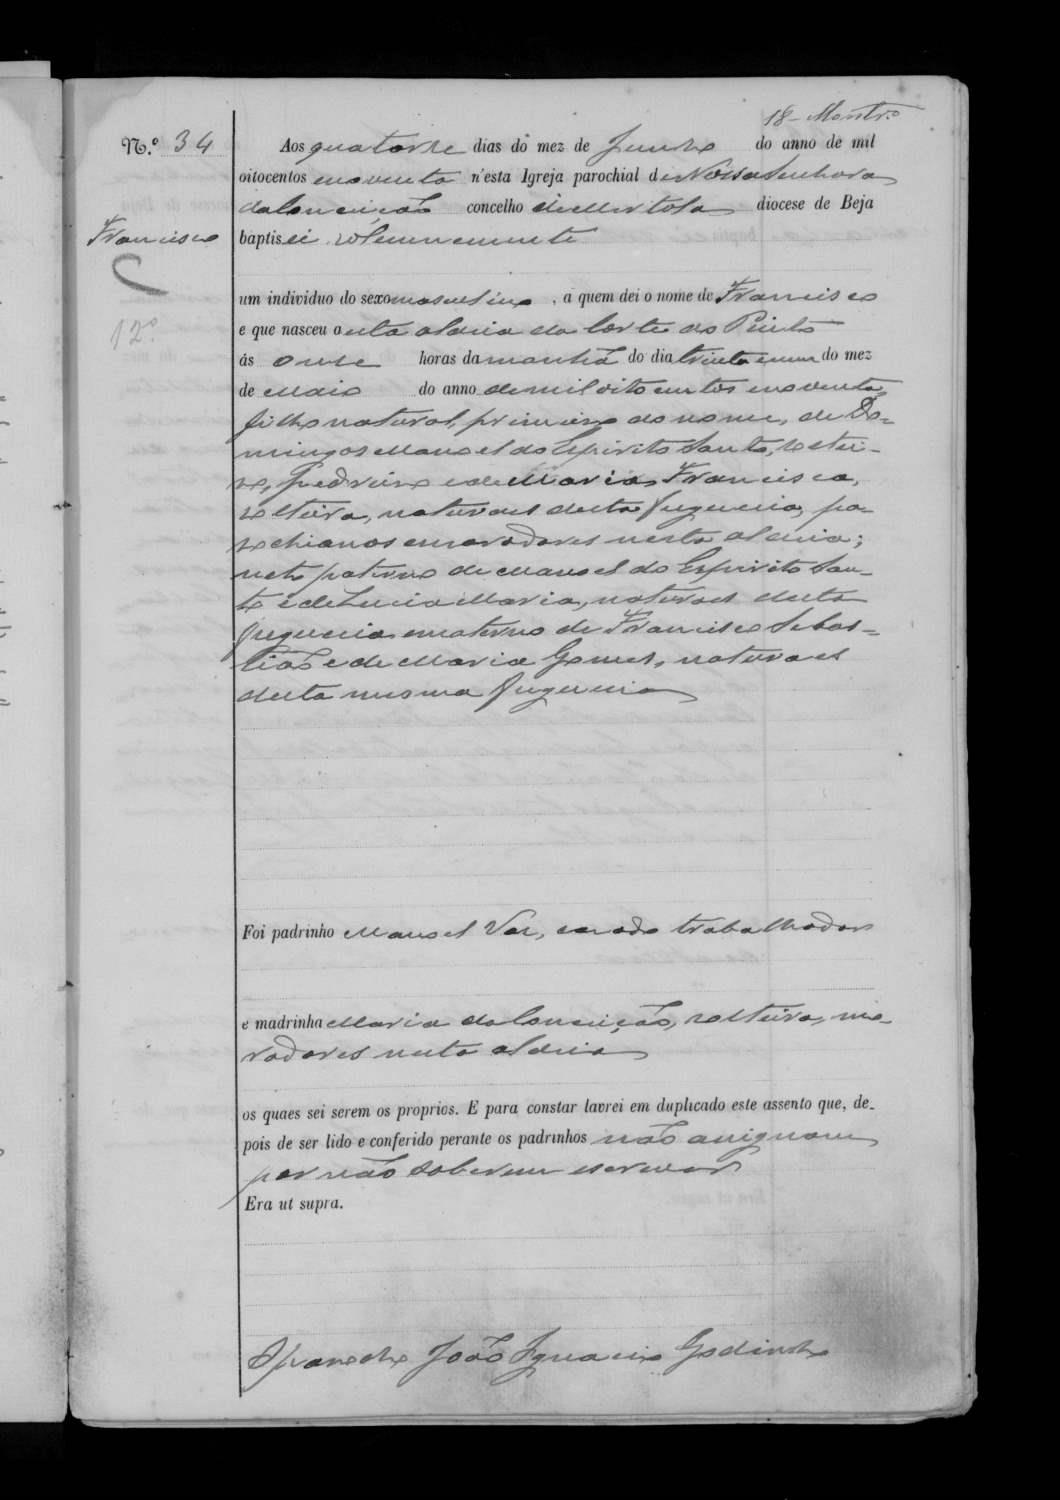 18 - Montr.o
N.º 34
Aos quatorse dias do mez de Junho do anno de mil
oitocentos e noventa n'esta Igreja parochial de Nossa Senhora
da Conceição concelho de Mertola diocese de Beja
Francisco
baptisei solemnemente
um individuo do sexo masculino, a quem dei o nome de Francisco
12º
e que nasceu nesta aldeia da Corte do Pinto
ás onze horas da manhã do dia trinta e um do mez
de Maio do anno de mil oito centos e noventa,
filho natural, primeiro do nome, de Do=
mingos Manoel do Espirito Santo, soltei-
ro, pedreiro e de Maria Francisca,
solteira, naturaes desta freguezia, pa-
rochianos e moradores nesta aldeia;
neto paterno de Manoel do Espirito San-
to e de Lucia Maria, naturaes desta
freguezia e materno de Francisco Sebas=
tião e de Maria Gomes, naturaes
desta mesma freguezia
Foi padrinho Manoel Vaz, casado trabalhador
e madrinha Maria da Conceição, solteira, mo-
radores nesta aldeia
os quaes sei serem os proprios. E para constar lavrei em duplicado este assento que, de-
pois de ser lido e conferido perante os padrinhos não assignam
por não saberem escrever
Era ut supra.
O parocho João Ignacio Godinho